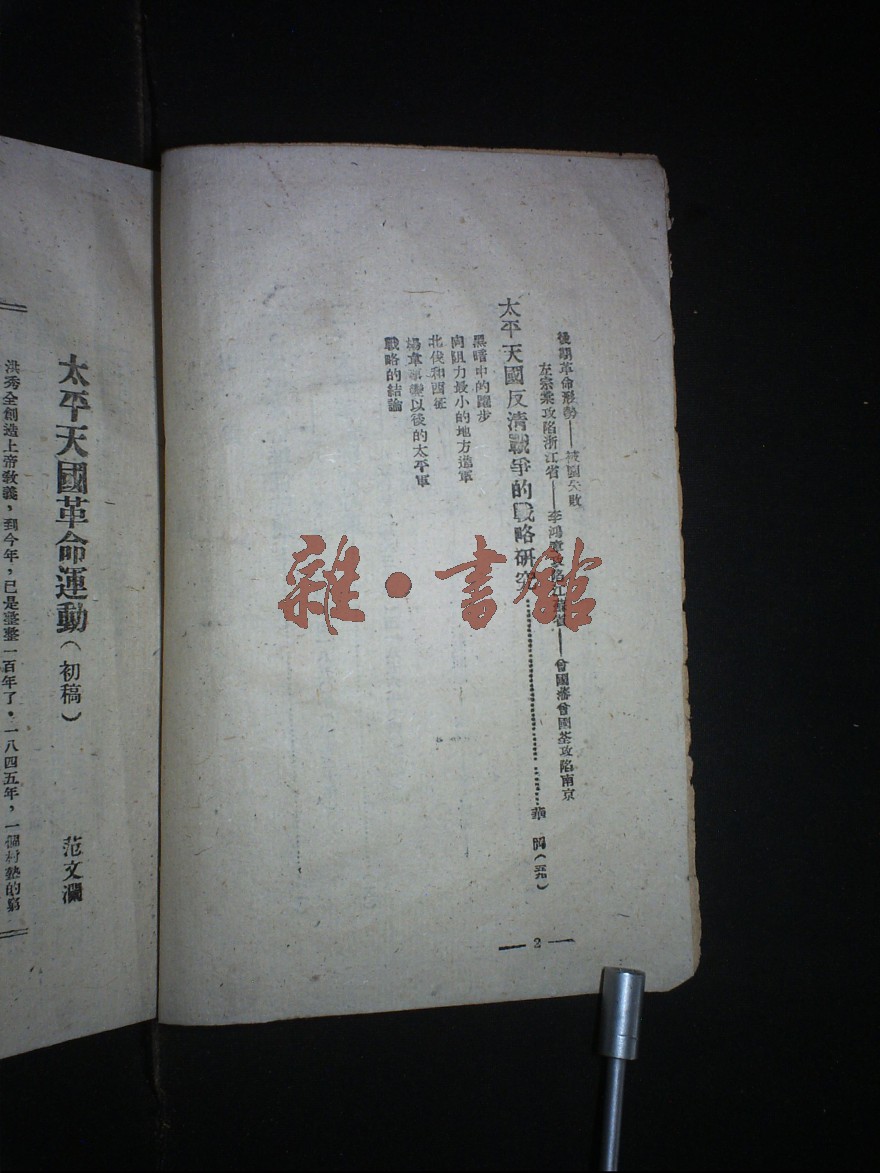 後期革命形勢——被圍失敗
左宗棠攻陷浙江省——李鴻章攻陷江蘇省——曾國藩曾國荃攻陷南京
太平天國反清戰爭的戰略研究……華崗(
黑暗中的躍步
向阻力最小的地方進軍
北伐和西征
楊韋事變以後的太平軍
戰略的結論
— 2 —
雜·書館
太平天國革命運動(初稿)
范文瀾
洪秀全創造上帝教義,到今年,已是整整一百年了。一八四五年,一個村塾的窮